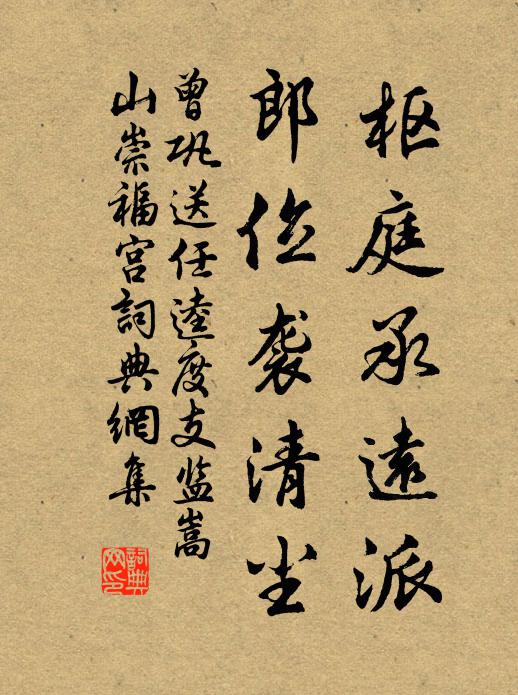 枢庭承遠派
郎位袭清尘
曾巩送任逵度支监嵩
山崇福宫詞典網集
詞典网印